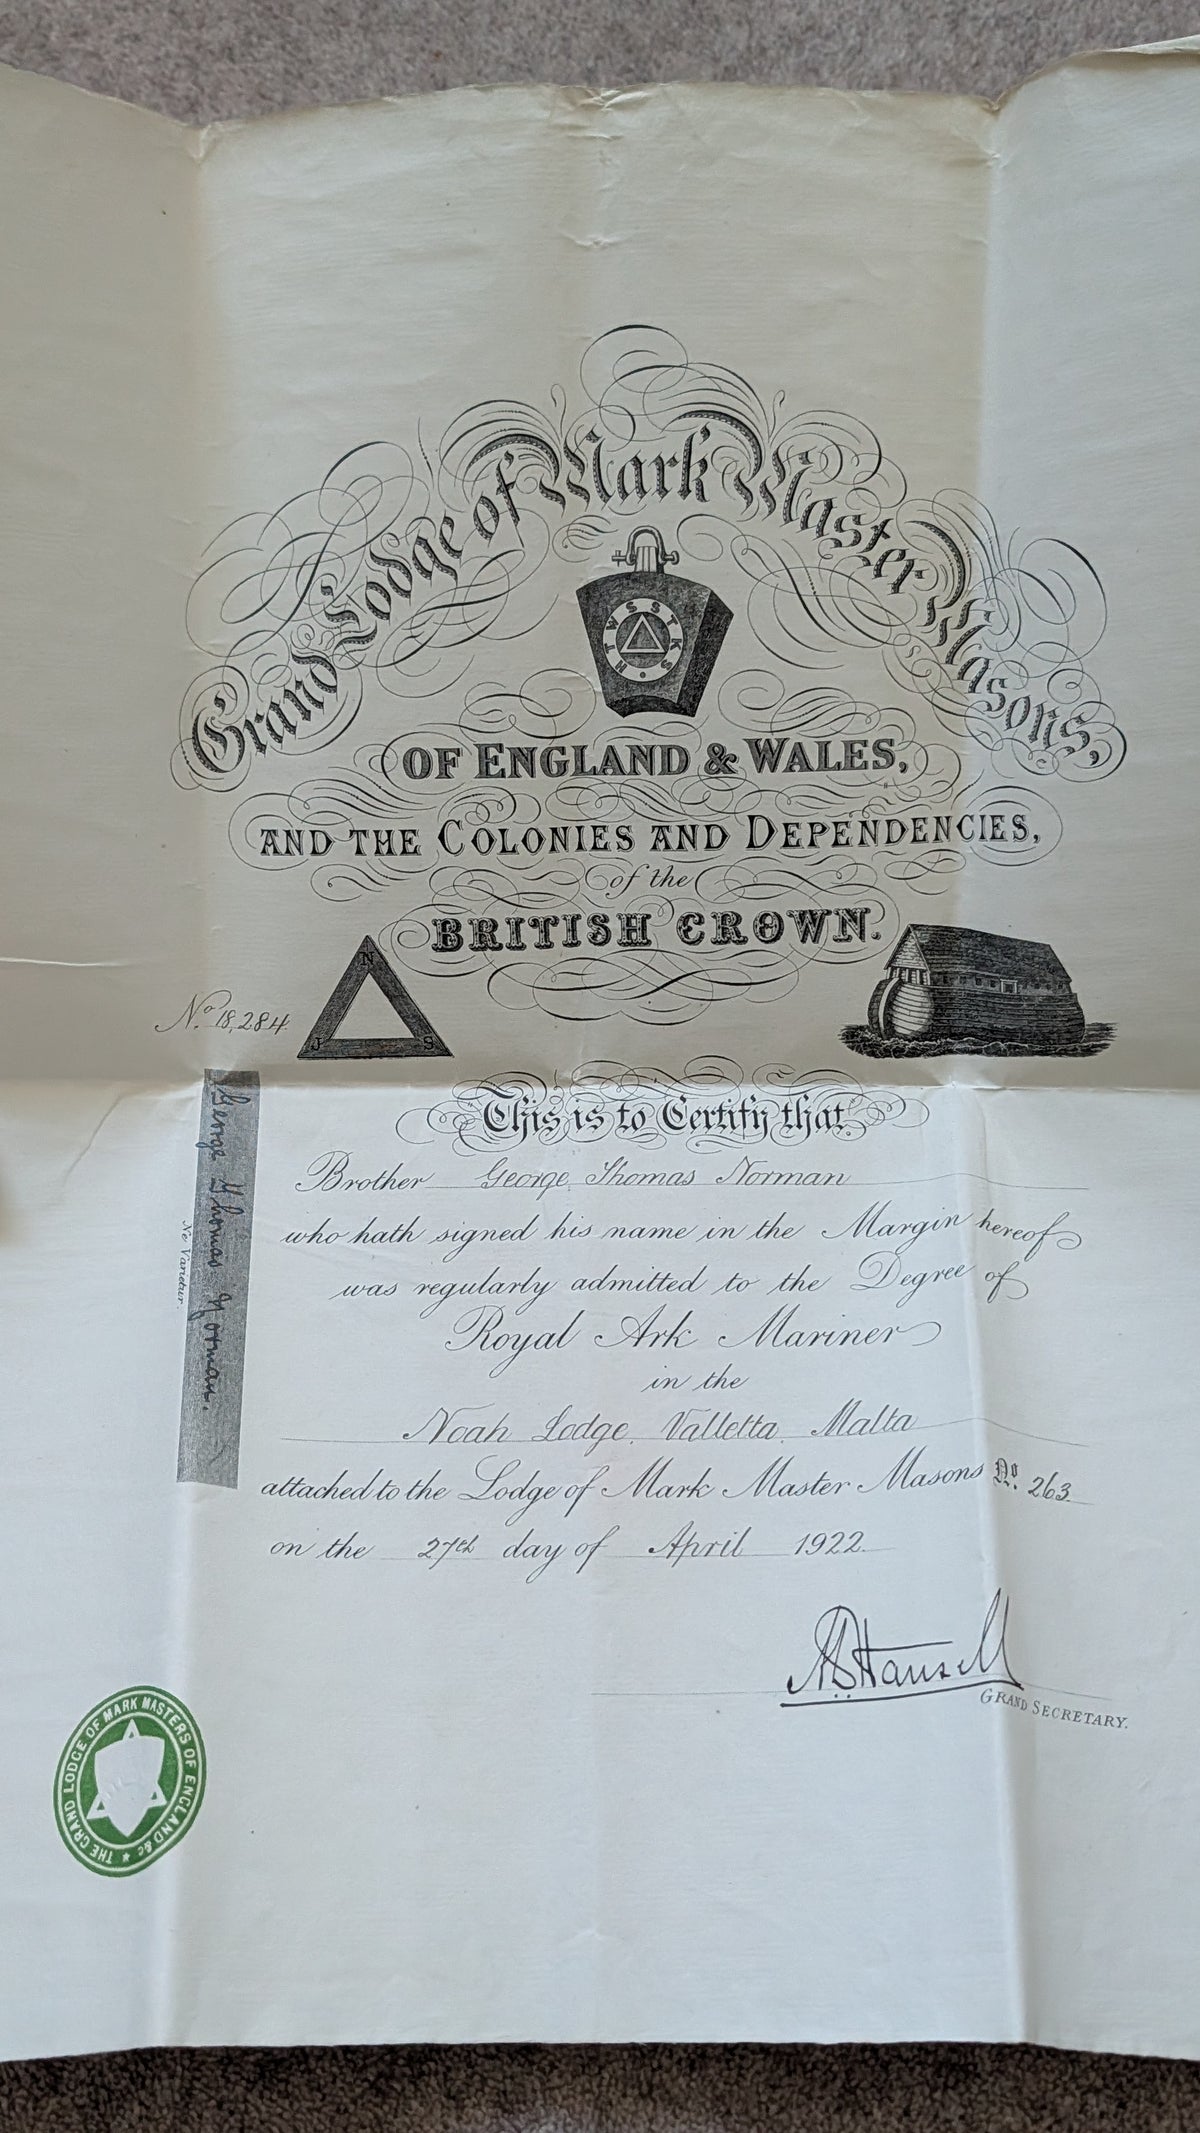 Grand Lodge of Mark Master Masons,
H T W S S T K S
OF ENGLAND & WALES,
AND THE COLONIES AND DEPENDENCIES,
of the
BRITISH CROWN.
N
J S
No. 18,284
This is to Certify that
Brother George Thomas Norman
who hath signed his name in the Margin hereof
was regularly admitted to the Degree of
Royal Ark Mariner
in the
Noah Lodge, Valletta, Malta
attached to the Lodge of Mark Master Masons No. 263
on the 27th day of April 1922
George Thomas Norman.
Ne Varietur
Hansell
GRAND SECRETARY.
THE GRAND LODGE OF MARK MASTERS OF ENGLAND &c